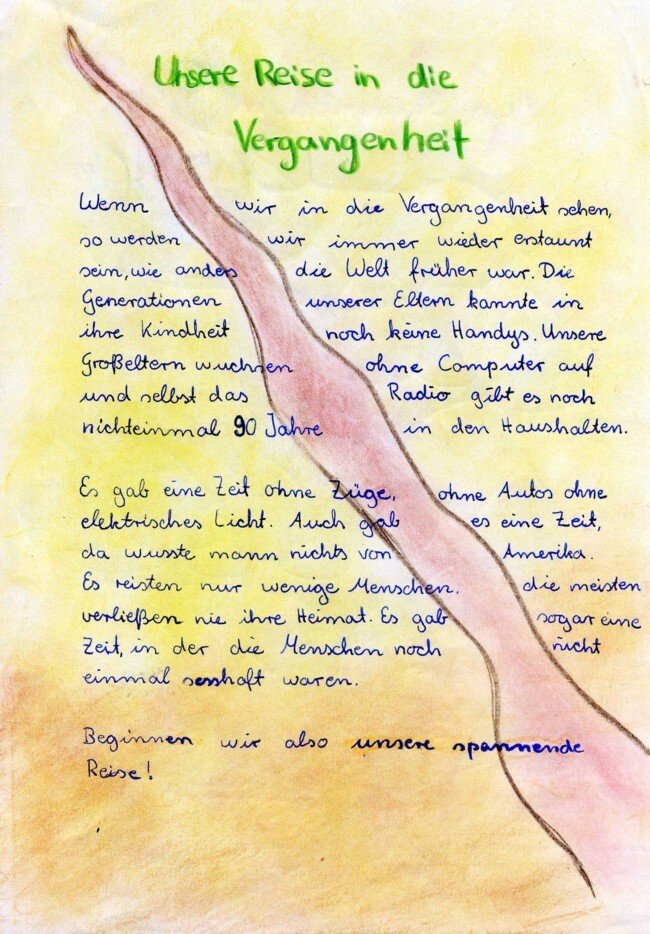 Unsere Reise in die
Vergangenheit
Wenn wir in die Vergangenheit sehen,
so werden wir immer wieder erstaunt
sein, wie anders die Welt früher war. Die
Generationen unserer Eltern kannte in
ihre Kindheit noch keine Handys. Unsere
Großeltern wuchsen ohne Computer auf
und selbst das Radio gibt es noch
nichteinmal 90 Jahre in den Haushalten.
Es gab eine Zeit ohne Züge, ohne Autos ohne
elektrisches Licht. Auch gab es eine Zeit,
da wusste mann nichts von Amerika.
Es reisten nur wenige Menschen, die meisten
verließen nie ihre Heimat. Es gab sogar eine
Zeit, in der die Menschen noch nicht
einmal sesshaft waren.
Beginnen wir also unsere spannende
Reise!